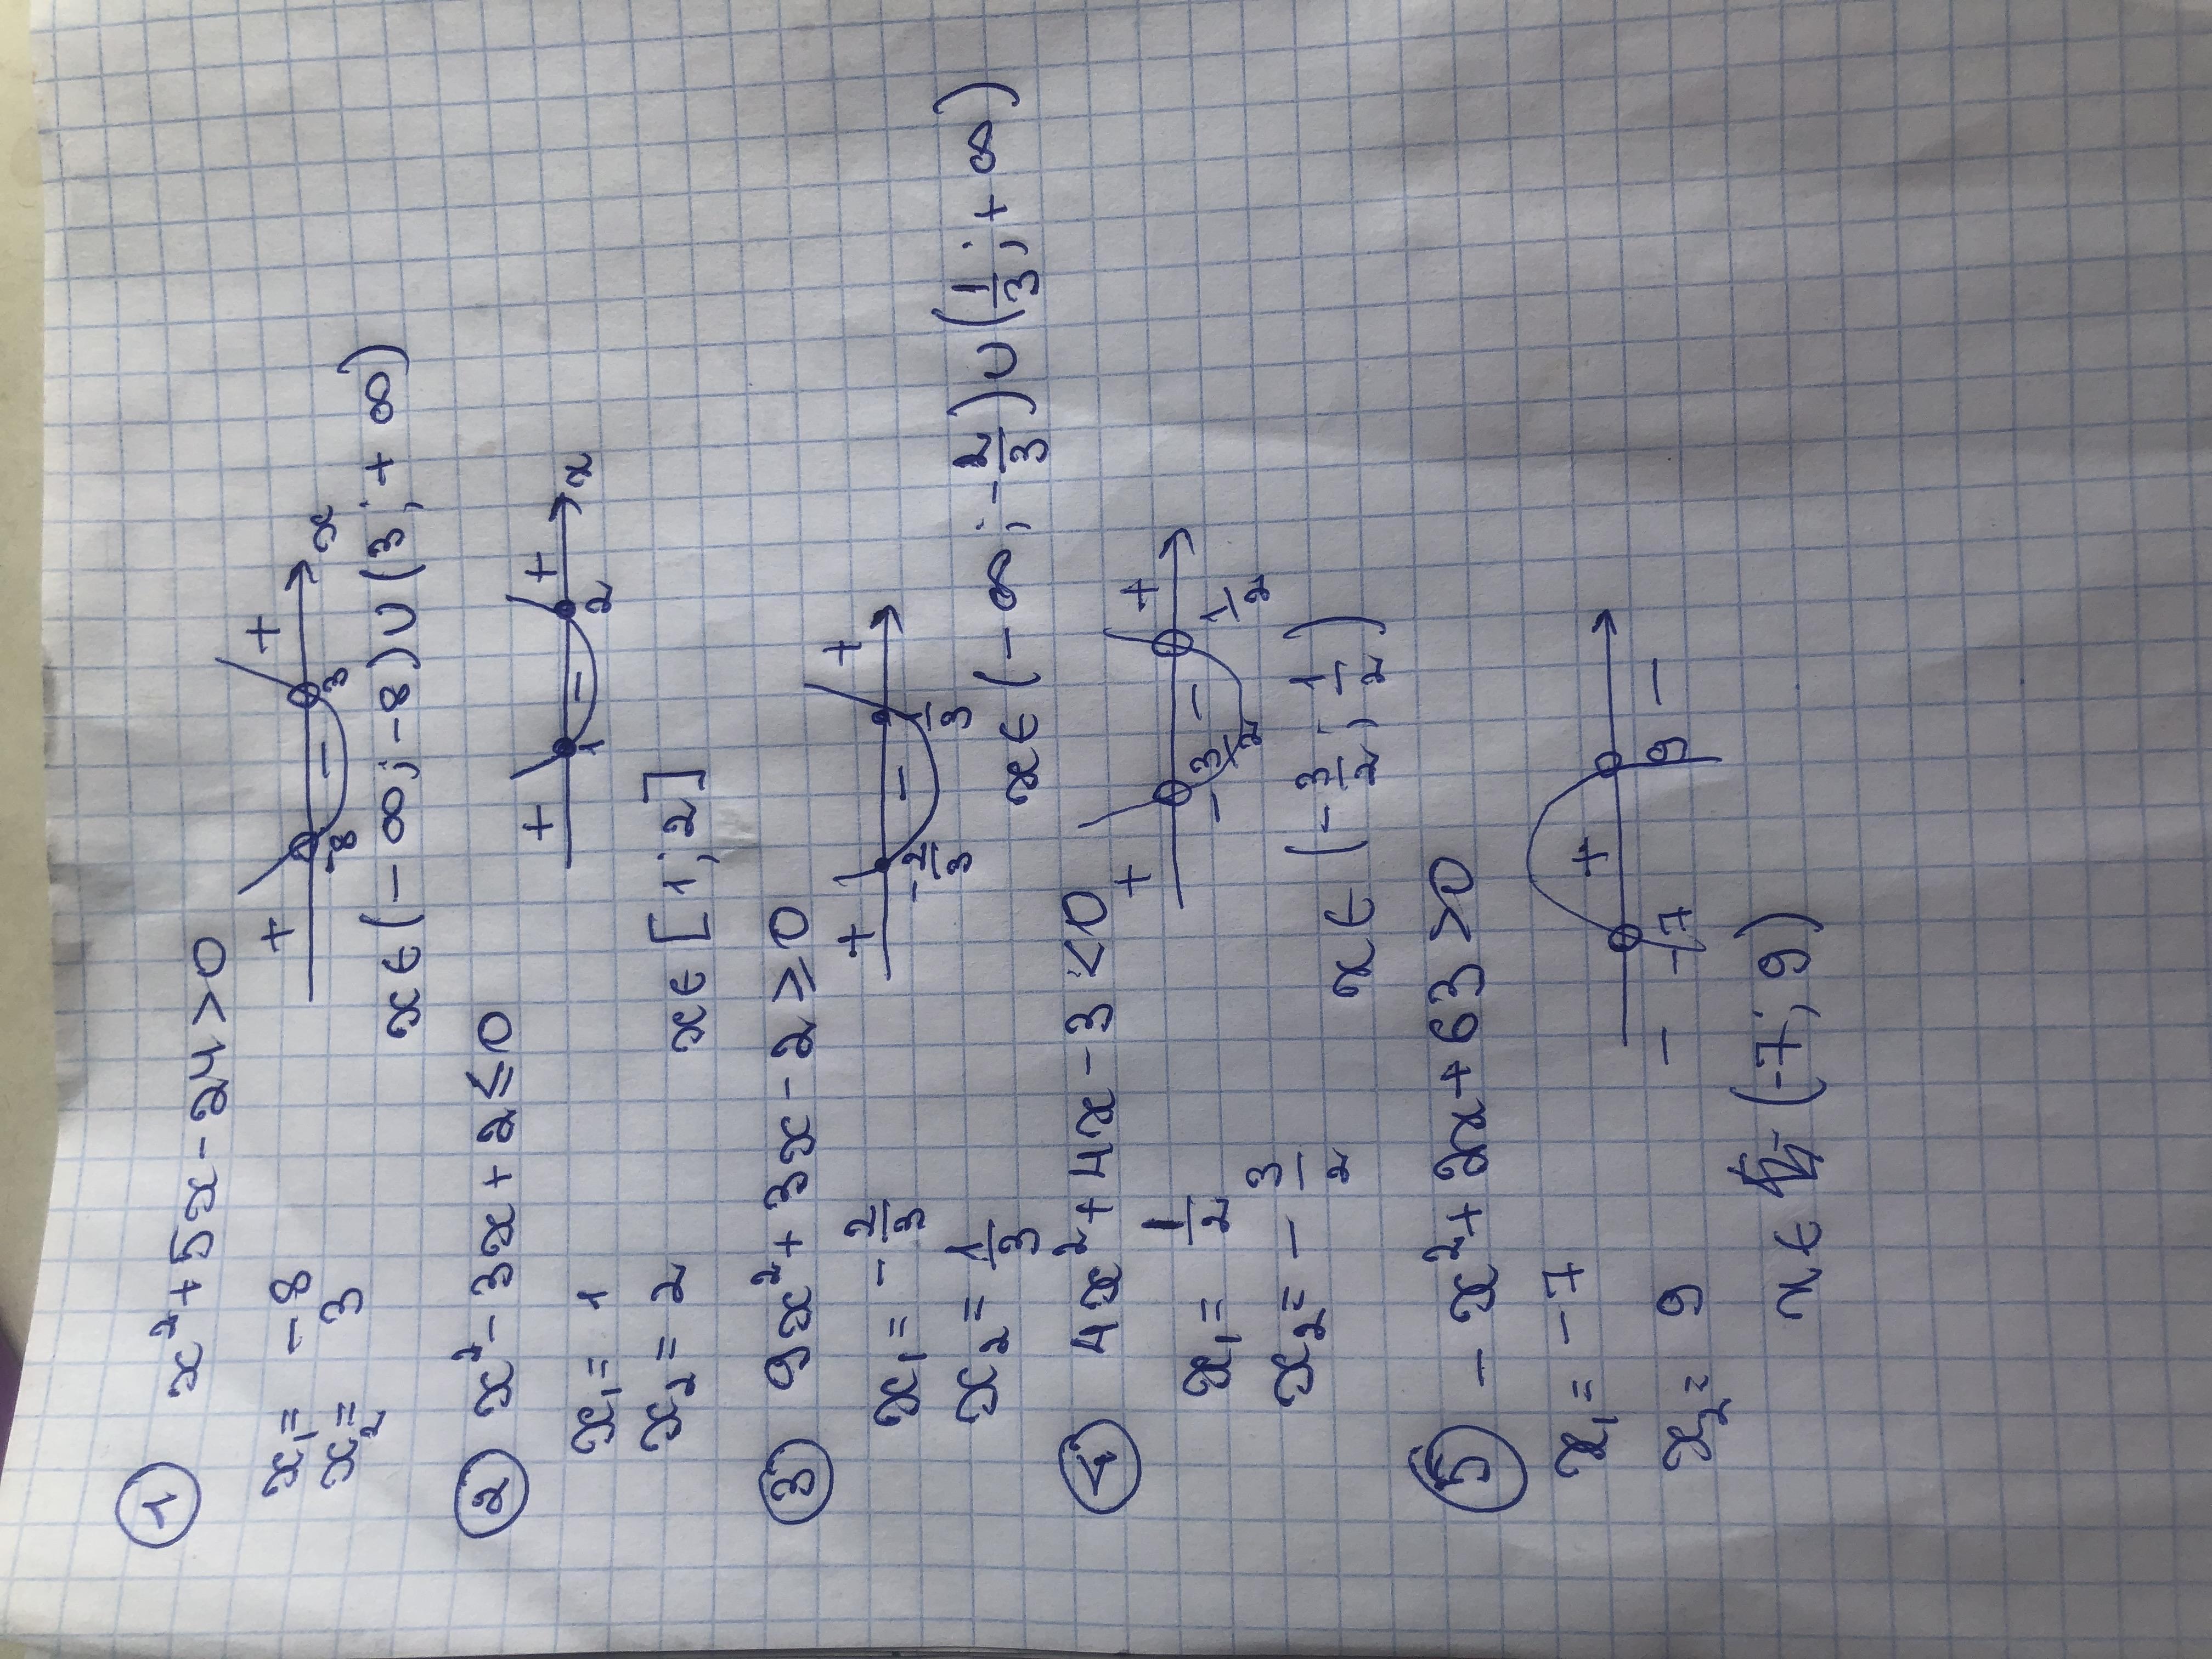 ① x²+5x-24>0
x₁= -8
x₂= 3
+ - +
-8 3 x
x∈(-∞;-8)∪(3;+∞)
② x²-3x+2≤0
x₁= 1
x₂= 2
+ - +
1 2 x
x∈[1;2]
③ 9x²+3x-2≥0
x₁= -2/3
x₂= 1/3
+ - +
-2/3 1/3
x∈(-∞;-2/3)∪(1/3;+∞)
④ 4x²+4x-3<0
x₁= 1/2
x₂= -3/2
+ - +
-3/2 1/2
x∈(-3/2;1/2)
⑤ -x²+2x+63>0
x₁= -7
x₂= 9
- + -
-7 9
x∈(-7;9)